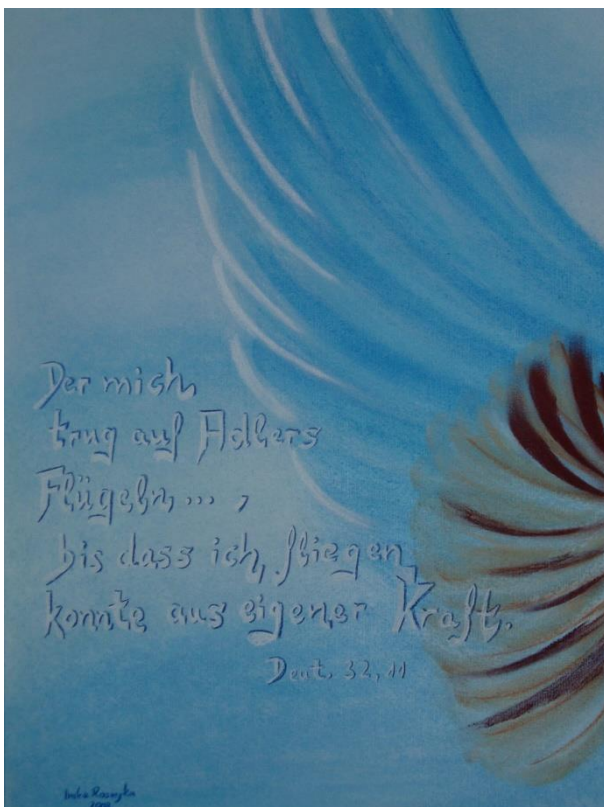 Der mich
trug auf Adlers
Flügeln ... ,
bis dass ich fliegen
konnte aus eigener Kraft.
Deut. 32, 11